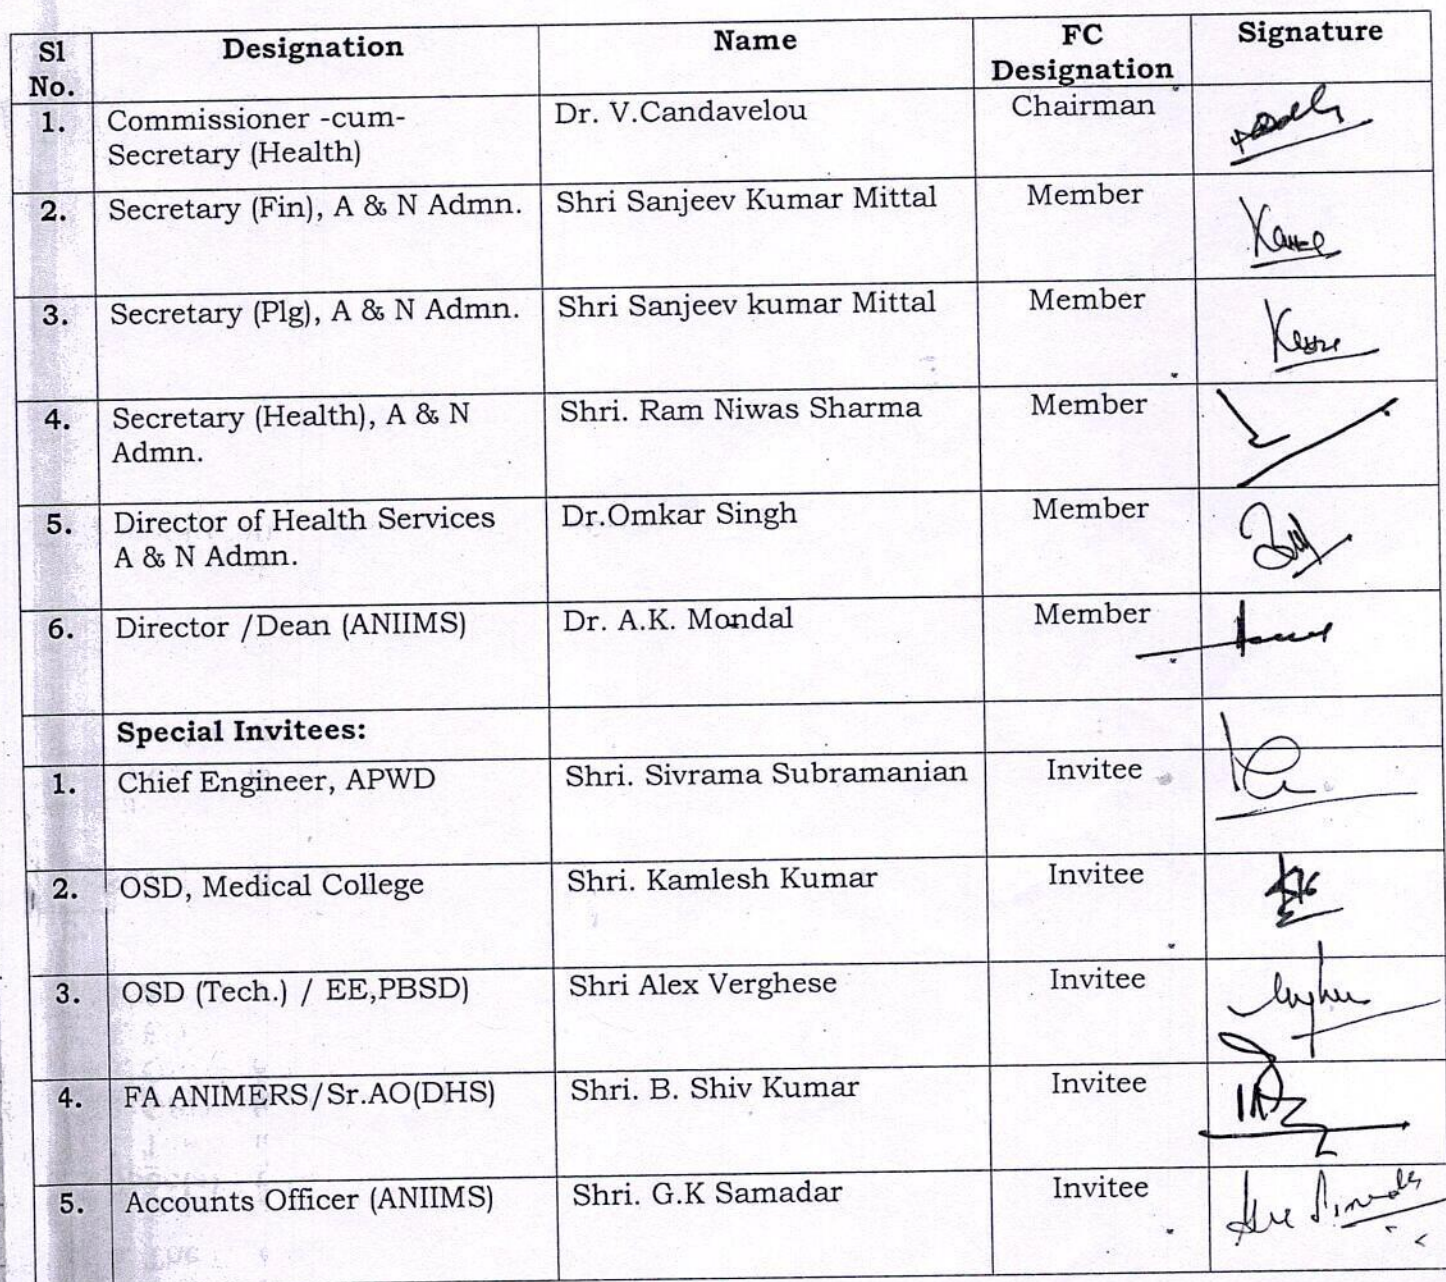 Sl No. Designation Name FC Designation Signature
1. Commissioner -cum- Secretary (Health) Dr. V.Candavelou Chairman
2. Secretary (Fin), A & N Admn. Shri Sanjeev Kumar Mittal Member
3. Secretary (Plg), A & N Admn. Shri Sanjeev kumar Mittal Member
4. Secretary (Health), A & N Admn. Shri. Ram Niwas Sharma Member
5. Director of Health Services A & N Admn. Dr.Omkar Singh Member
6. Director /Dean (ANIIMS) Dr. A.K. Mondal Member
Special Invitees:
1. Chief Engineer, APWD Shri. Sivrama Subramanian Invitee
2. OSD, Medical College Shri. Kamlesh Kumar Invitee
3. OSD (Tech.) / EE,PBSD) Shri Alex Verghese Invitee
4. FA ANIMERS/Sr.AO(DHS) Shri. B. Shiv Kumar Invitee
5. Accounts Officer (ANIIMS) Shri. G.K Samadar Invitee